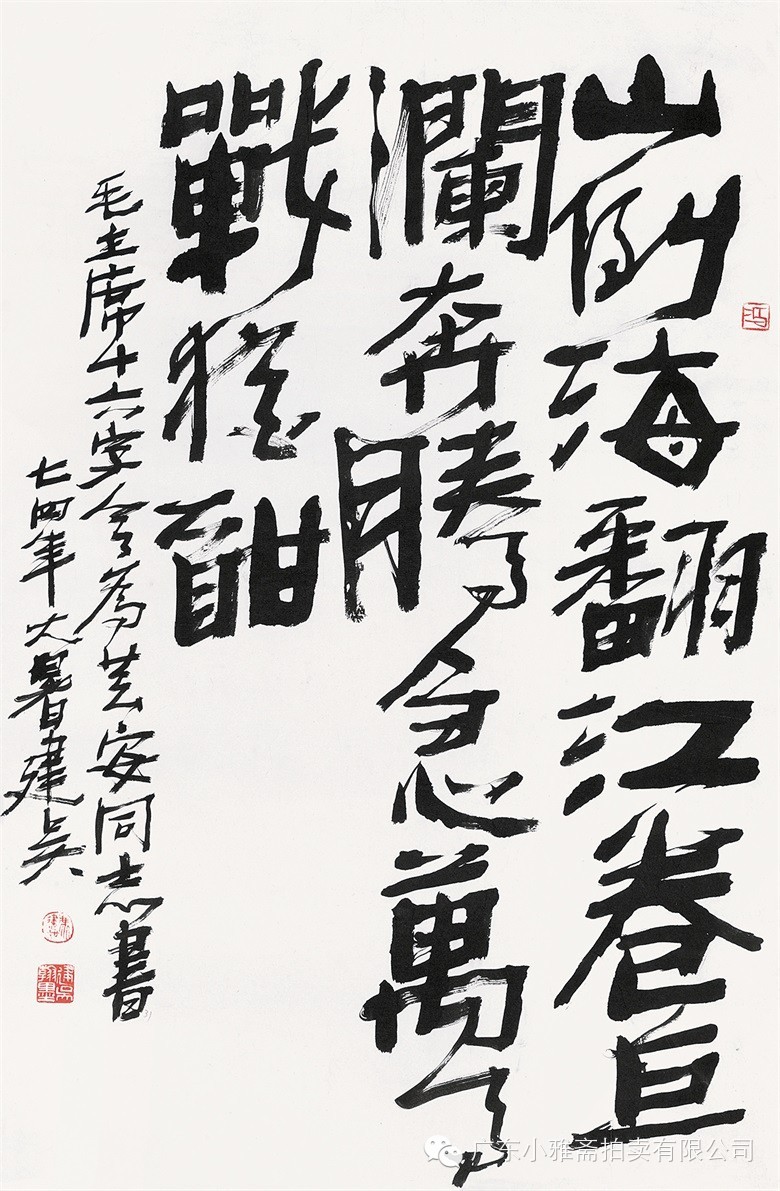 山倒海翻江卷巨
瀾奔騰急萬马
戰猶酣
毛主席十六字令为芸安同志書
七四年大暑建吴
建吴翰墨
广东小雅斋拍卖有限公司